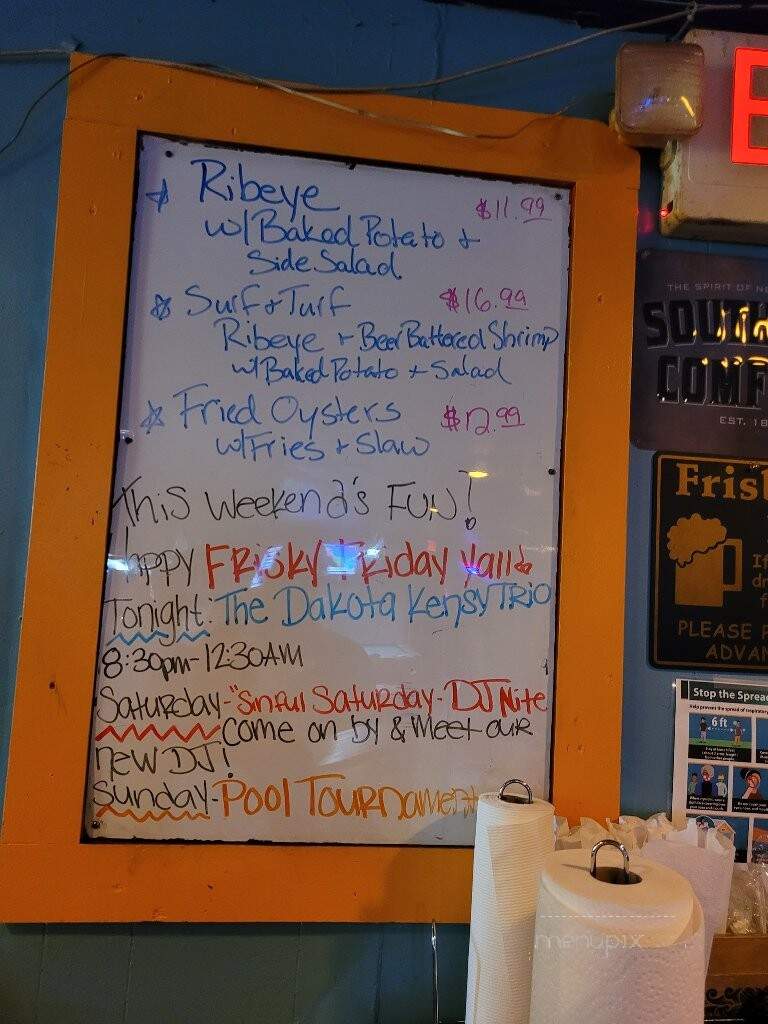 Ribeye $11.99
w/Baked Potato +
Side Salad
Surf + Turf $16.99
Ribeye + Beer Battered Shrimp
w/Baked Potato + Salad
Fried Oysters $12.99
w/Fries + Slaw
This Weekend's FUN!
hppy Frisky Friday Yall
Tonight: The Dakota Kensy Trio
8:30pm-12:30AM
Saturday-"Sinful Saturday- DJ Nite
Come on by & Meet our
new DJ!
Sunday-Pool Tournament
E
THE SPIRIT OF NE
SOUTH
COMF
EST. 18
Frisk
If
dr
f
PLEASE P
ADVAN
Stop the Spread
Help prevent the spread of respiratory
6 ft
menupix